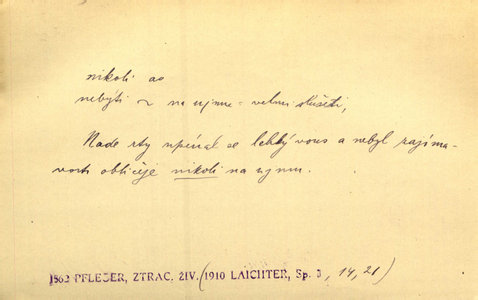 nikoli ao
nebýti ~ na ujmu = velmi slušeti,
Nade rty upínal se lehký vous a nebyl zajíma-
vosti obličeje nikoli na ujmu.
1862 PFLEGER, ZTRAC. ŽIV. (1910 LAICHTER, Sp. I, 14, 21)